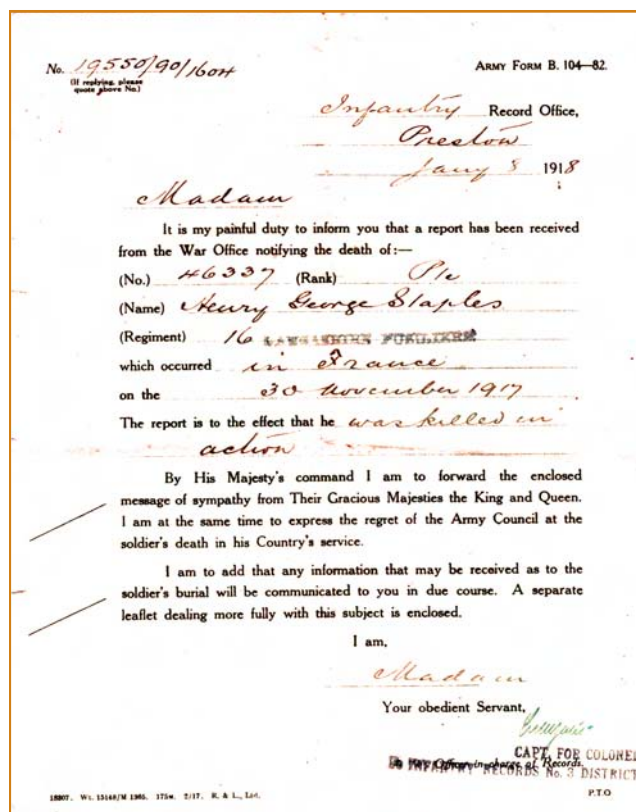 No. 19550/90/1604
(If replying, please
quote above No.)
ARMY FORM B. 104—82.
Infantry Record Office,
Preston
Jany 8 1918
Madam
It is my painful duty to inform you that a report has been received
from the War Office notifying the death of:—
(No.) 46337 (Rank) Pte
(Name) Henry George Staples
(Regiment) 16 LANCASHIRE FUSILIERS
which occurred in France
on the 30 November 1917
The report is to the effect that he was killed in
action
By His Majesty's command I am to forward the enclosed
message of sympathy from Their Gracious Majesties the King and Queen.
I am at the same time to express the regret of the Army Council at the
soldier's death in his Country's service.
I am to add that any information that may be received as to the
soldier's burial will be communicated to you in due course. A separate
leaflet dealing more fully with this subject is enclosed.
I am,
Madam
Your obedient Servant,
CAPT. FOR COLONEL
Officer in charge of Records.
INFANTRY RECORDS No. 3 DISTRICT
18807. Wt. 15148/M 1365. 175m. 2/17. R. & L., Ltd.
P.T.O